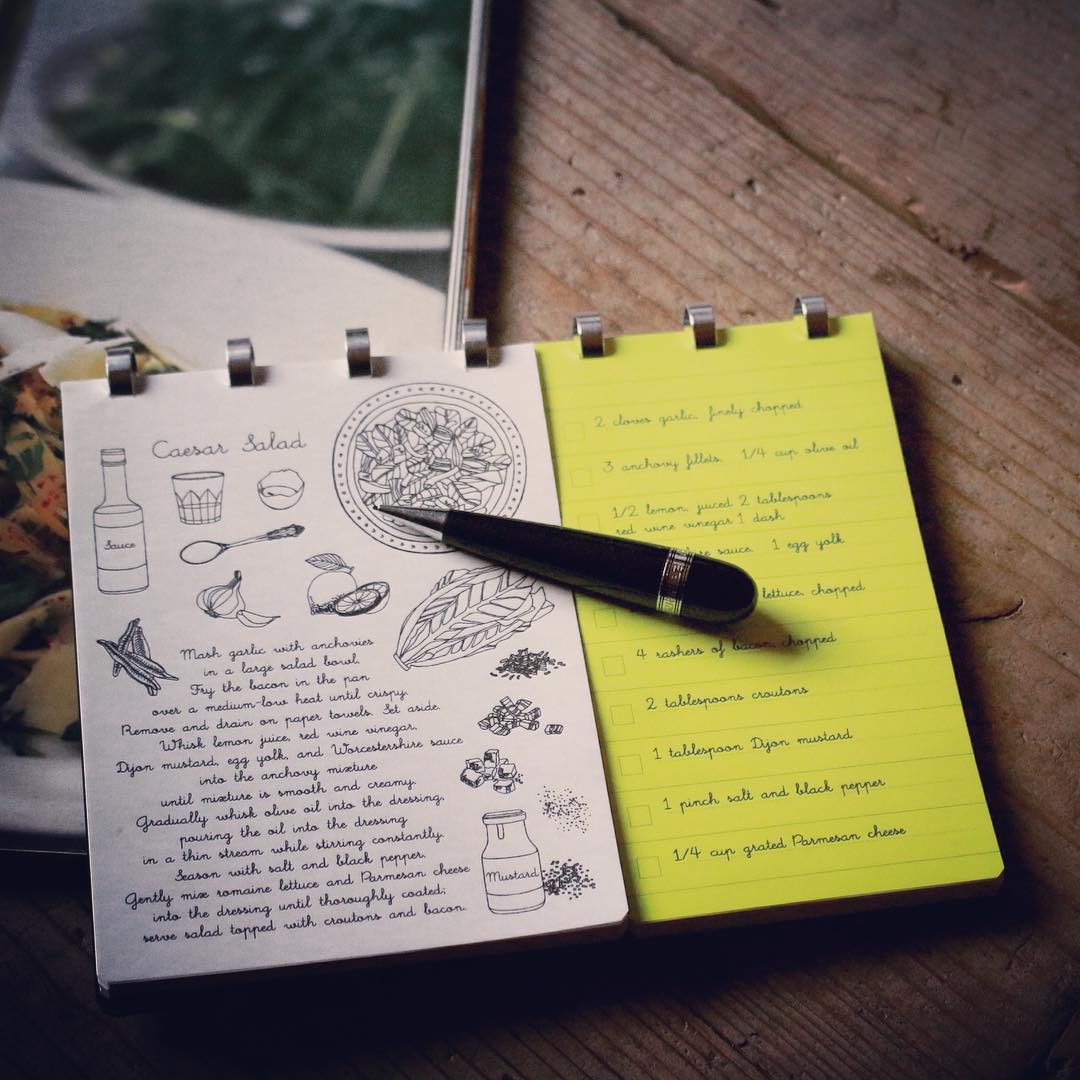 Caesar Salad
Sauce
Mash garlic with anchovies
in a large salad bowl.
Fry the bacon in the pan
over a medium-low heat until crispy.
Remove and drain on paper towels. Set aside.
Whisk lemon juice, red wine vinegar,
Dijon mustard, egg yolk, and Worcestershire sauce
into the anchovy mixture
until mixture is smooth and creamy.
Gradually whisk olive oil into the dressing,
pouring the oil into the dressing
in a thin stream while stirring constantly.
Season with salt and black pepper.
Gently mix romaine lettuce and Parmesan cheese
into the dressing until thoroughly coated;
serve salad topped with croutons and bacon.
Mustard
2 cloves garlic, finely chopped
3 anchovy fillets. 1/4 cup olive oil
1/2 lemon, juiced 2 tablespoons
red wine vinegar 1 dash
sauce. 1 egg yolk
lettuce, chopped
4 rashers of bacon, chopped
2 tablespoons croutons
1 tablespoon Dijon mustard
1 pinch salt and black pepper
1/4 cup grated Parmesan cheese